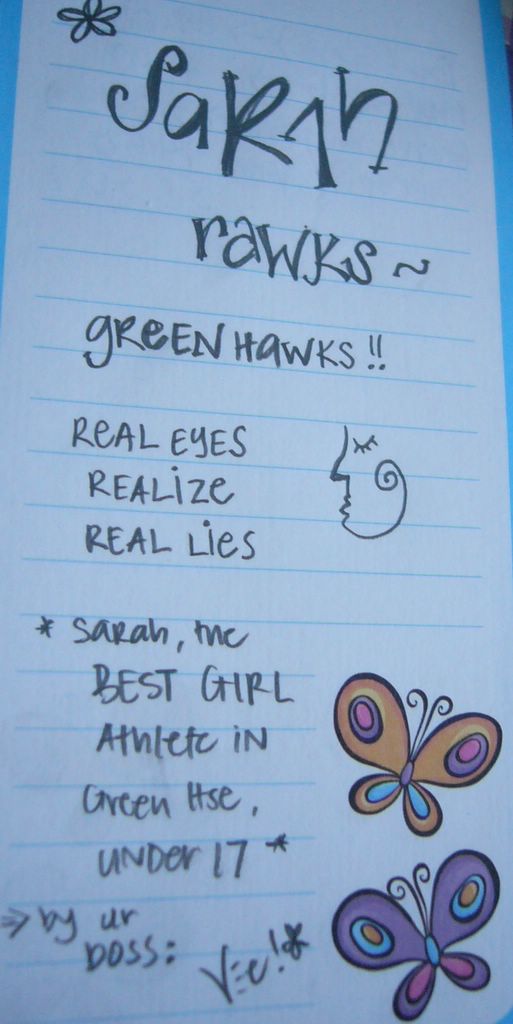 SaRah
rawks~
gReENHawKS!!
ReAL EYES
REALiZE
REAL Lies
* Sarah, the
BEST GIRL
Athlete iN
Green Hse,
UNDer 17 *
⇒ by ur
boss: Vee!*